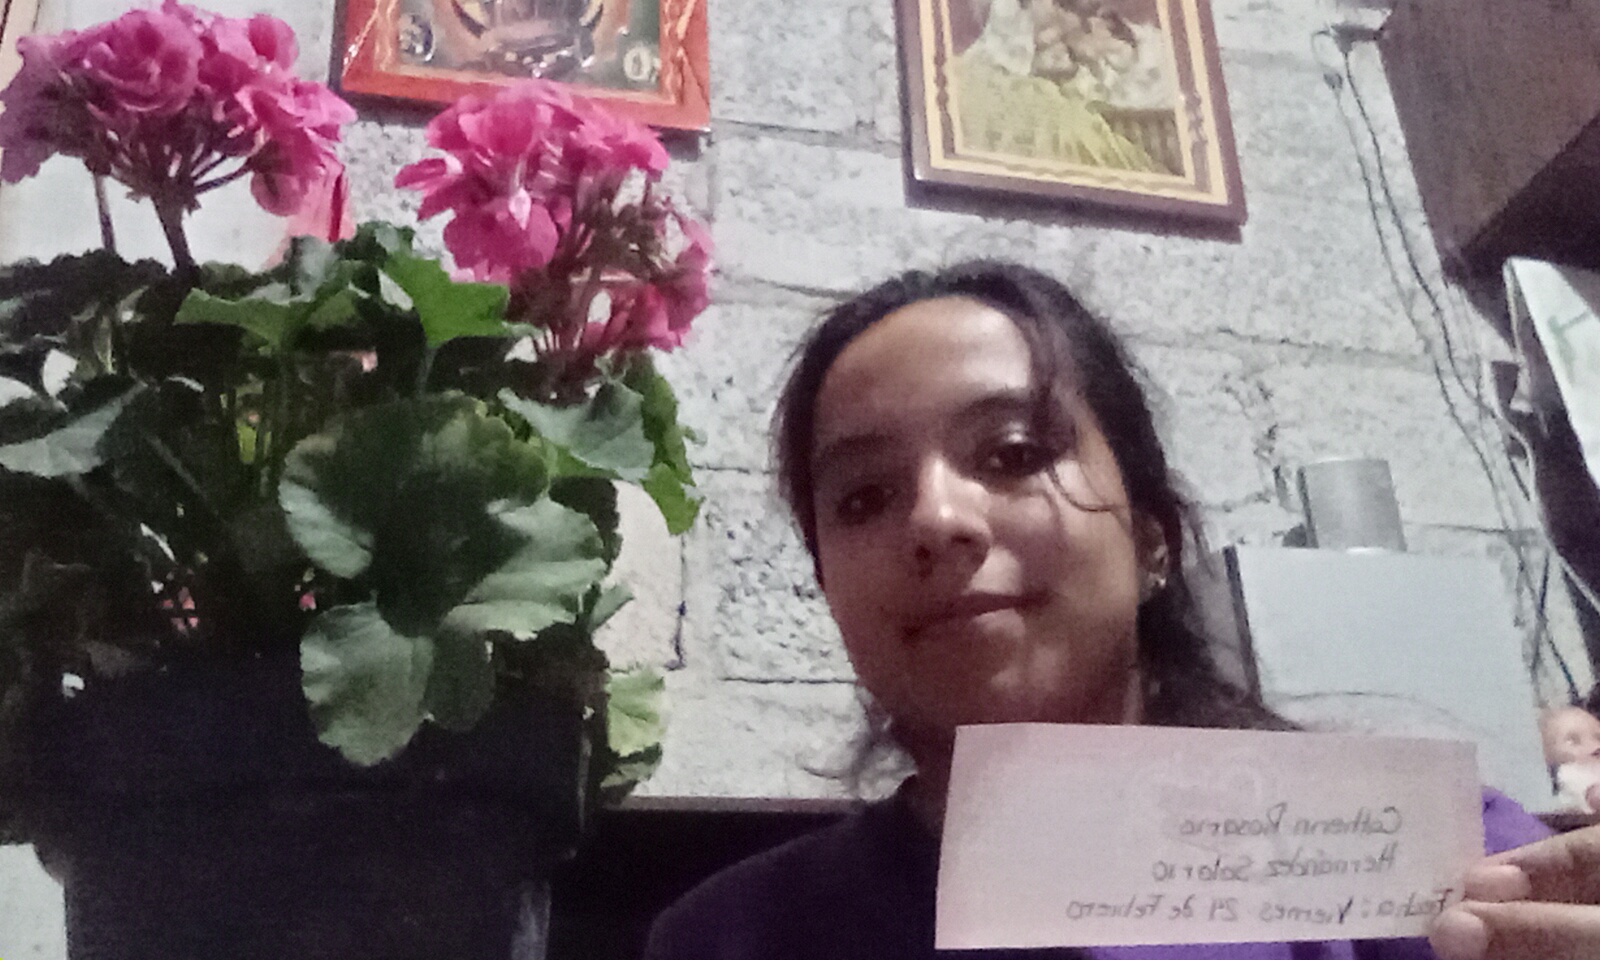 Catherin Rosario
Hernández Solario
Fecha: Viernes 24 de Febrero